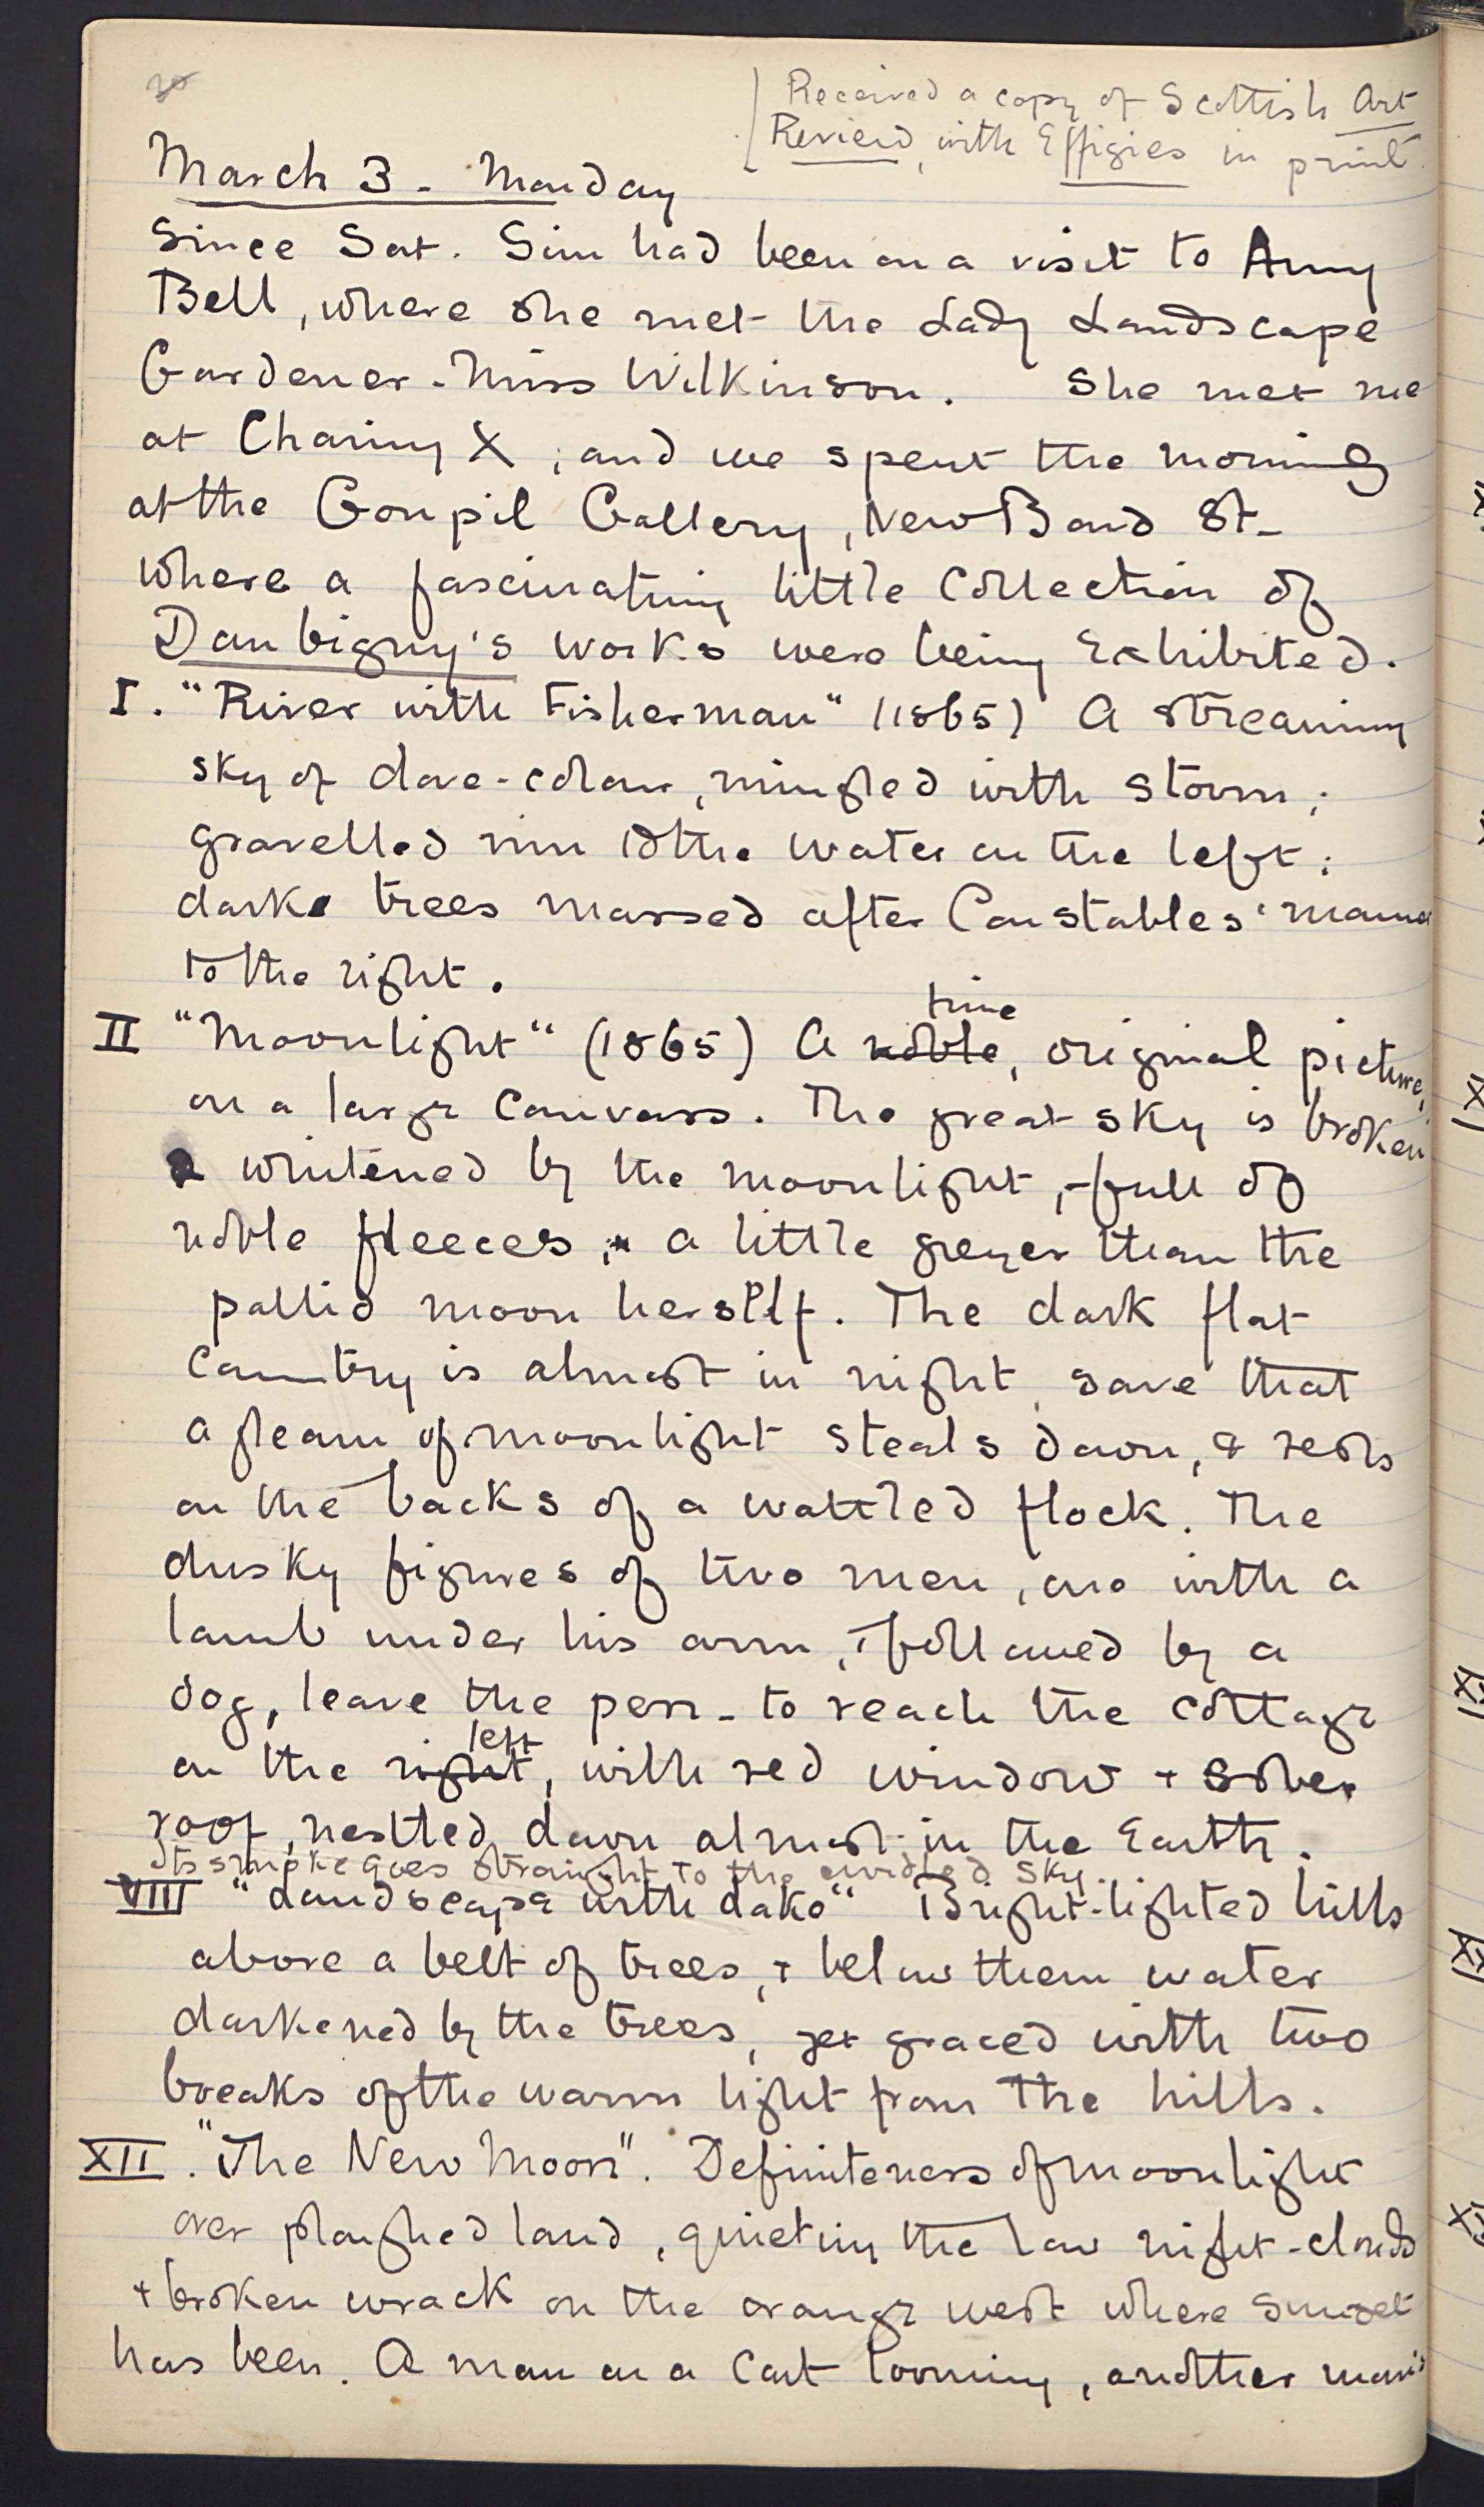 20
Received a copy of Scottish Art
Review, with Effigies in print.
March 3 - Monday
Since Sat. Sim had been on a visit to Amy
Bell, where she met the Lady Landscape
Gardener - Miss Wilkinson. She met me
at Charing X, and we spent the morning
at the Goupil Gallery, New Bond St -
where a fascinating little collection of
Daubigny's works were being Exhibited.
I. "River with Fisherman" (1865) A streaming
sky of dove-colour, mingled with storm;
gravelled rim to the water on the left;
dark trees massed after Constables' manner
to the right.
true
II "Moonlight" (1865) A noble, original picture,
on a large canvass. The great sky is broken
& whitened by the moonlight, - full of
noble fleeces, a little greyer than the
pallid moon herself. The dark flat
country is almost in night, save that
a gleam of moonlight steals down, & rests
on the backs of a wattled flock. The
dusky figures of two men, one with a
lamb under his arm, & followed by a
dog, leave the pen - to reach the cottage
left
on the right, with red window + sober
roof, nestled down almost in the Earth.
Its smoke goes straight to the sky.
VIII "Landscape with Lake" Bright-lighted hills
above a belt of trees, + below them water
darkened by the trees, yet graced with two
breaks of the warm light from the hills.
XII. "The New Moon". Definiteness of moonlight
over ploughed land, quieting the low night-clouds
+ broken wrack on the orange west where sunset
has been. A man on a cart looming, another man's